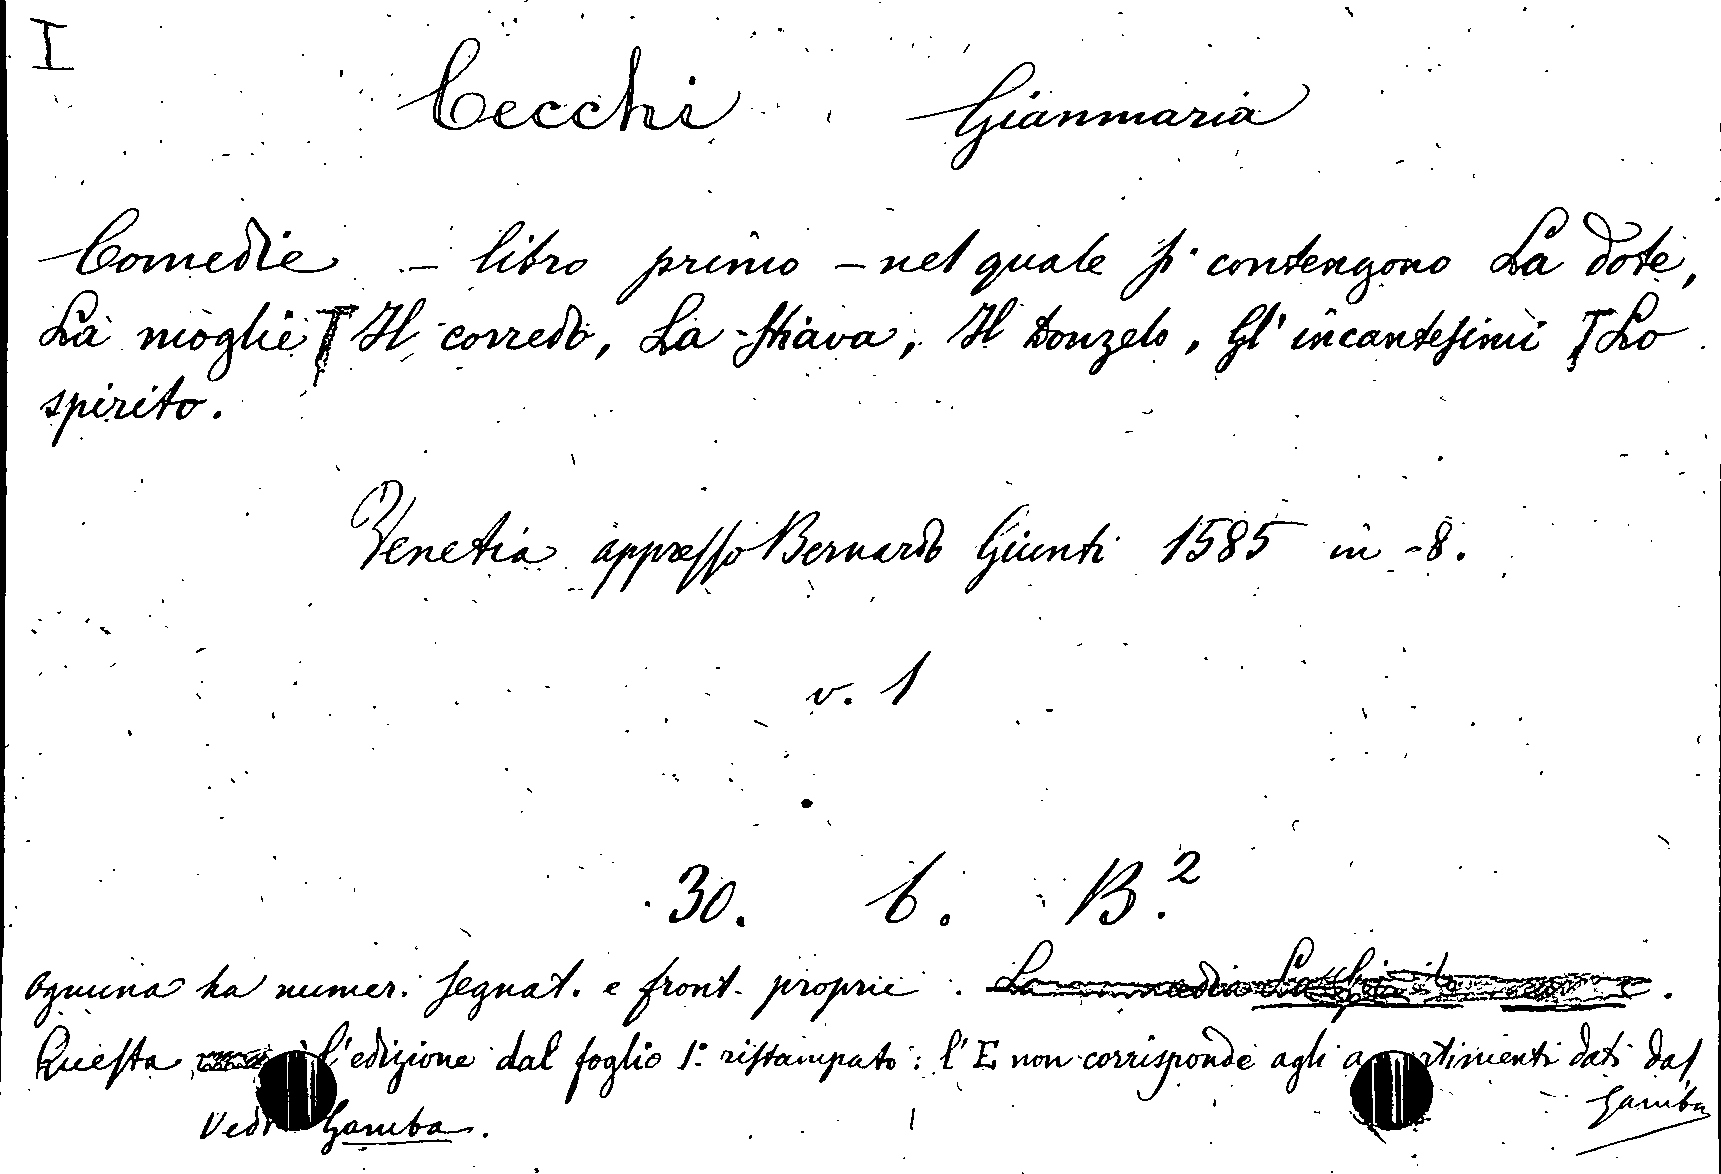 I
Cecchi Gianmaria
Comedie - libro primo - nel quale si contengono La dote,
La moglie Il corredo, La stiava, Il Donzelo, Gl' incantesimi Lo
spirito.
Venetia appresso Bernardo Giunti 1585 in -8.
v. 1
30. 6. B.2
Ognuna ha numer. segnat. e front. proprii.
Questa l'edizione dal foglio 1º ristampato: l'E non corrisponde agli dati dal
Gamba
Vedi Gamba.